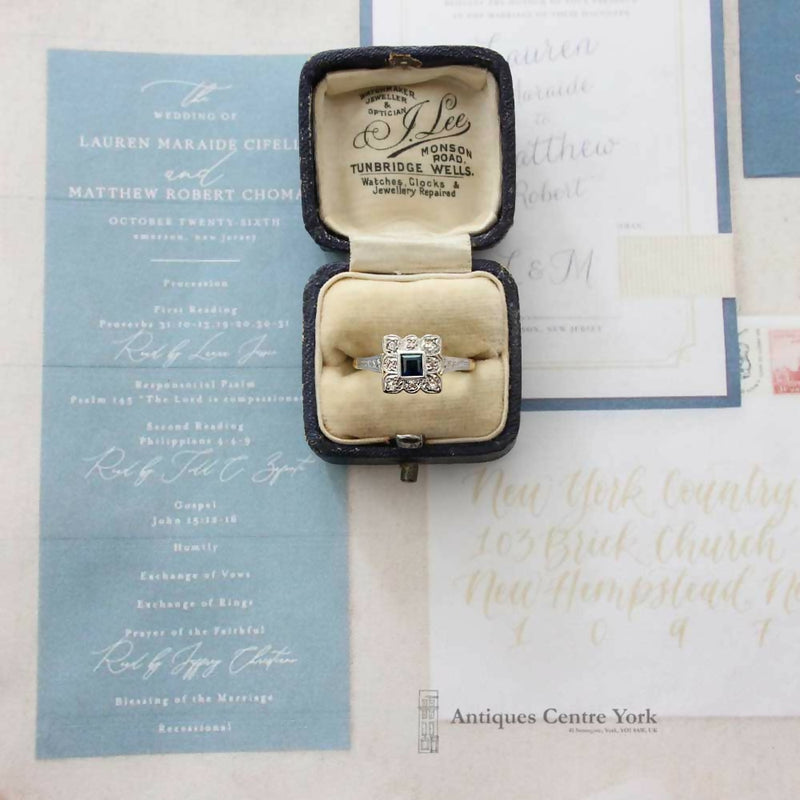 the
WEDDING OF
LAUREN MARAIDE CIFELL
and
MATTHEW ROBERT CHOMA
OCTOBER TWENTY-SIXTH
emerson, new jersey
Procession
First Reading
Proverbs 31:10-13,19-20,30-31
Read by
Responsorial Psalm
Psalm 145 "The Lord is compassionate
Second Reading
Philippians 4:4-9
Read by Todd C
Gospel
John 15:12-16
Homily
Exchange of Vows
Exchange of Rings
Prayer of the Faithful
Read by Christiano
Blessing of the Marriage
Recessional
WATCHMAKER,
JEWELLER
&
OPTICIAN
J. Lee
MONSON
ROAD,
TUNBRIDGE WELLS.
Watches, Clocks &
Jewellery Repaired
AT THE MARRIAGE OF THEIR DAUGHTER
Lauren
Maraide
to
Matthew
Robert
& M
SON, NEW JERSEY
New York Country
103 Brick Church
New Hempstead N
1 0 9 7
Antiques Centre York
41 Stonegate, York, YO1 8AW, UK